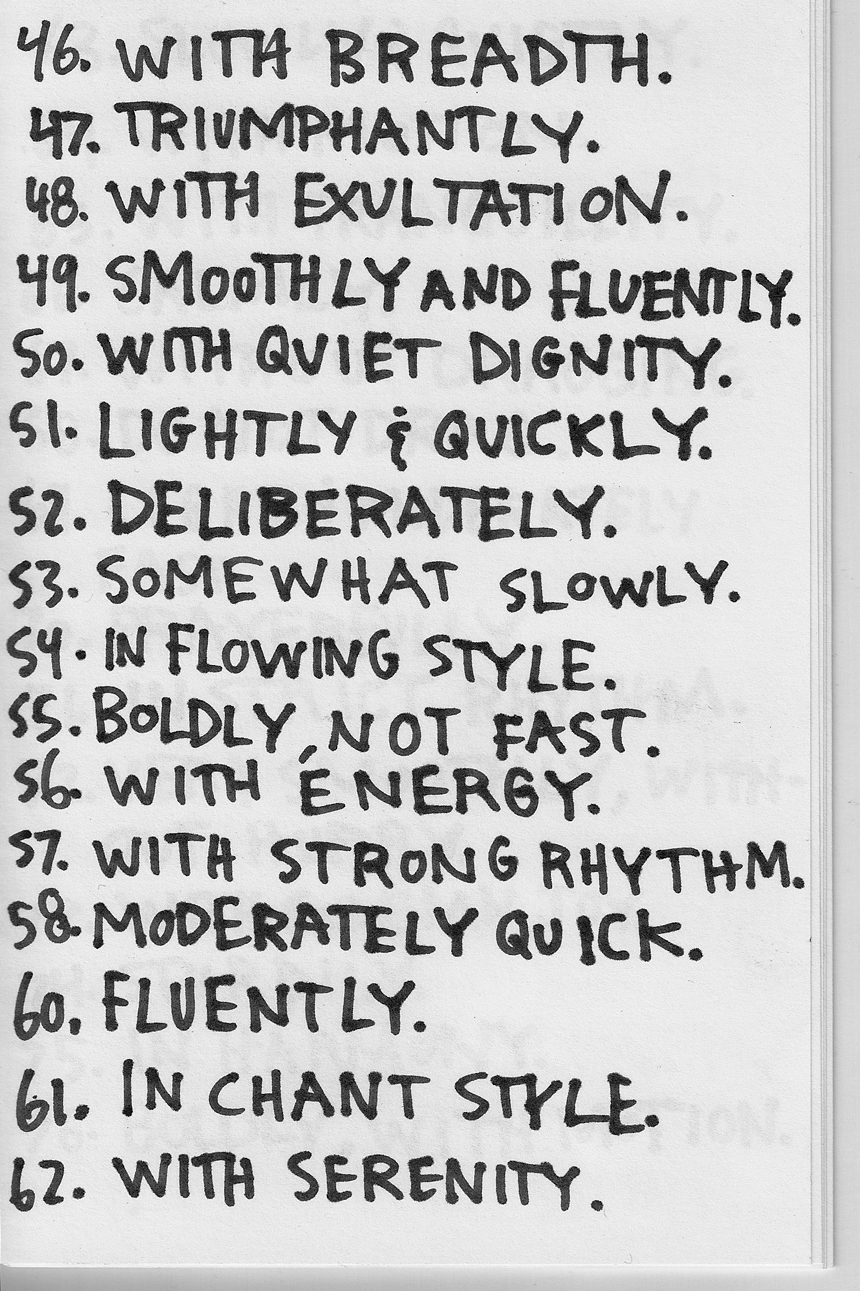 46. WITH BREADTH.
47. TRIUMPHANTLY.
48. WITH EXULTATION.
49. SMOOTHLY AND FLUENTLY.
50. WITH QUIET DIGNITY.
51. LIGHTLY & QUICKLY.
52. DELIBERATELY.
53. SOMEWHAT SLOWLY.
54. IN FLOWING STYLE.
55. BOLDLY, NOT FAST.
56. WITH ENERGY.
57. WITH STRONG RHYTHM.
58. MODERATELY QUICK.
60. FLUENTLY.
61. IN CHANT STYLE.
62. WITH SERENITY.